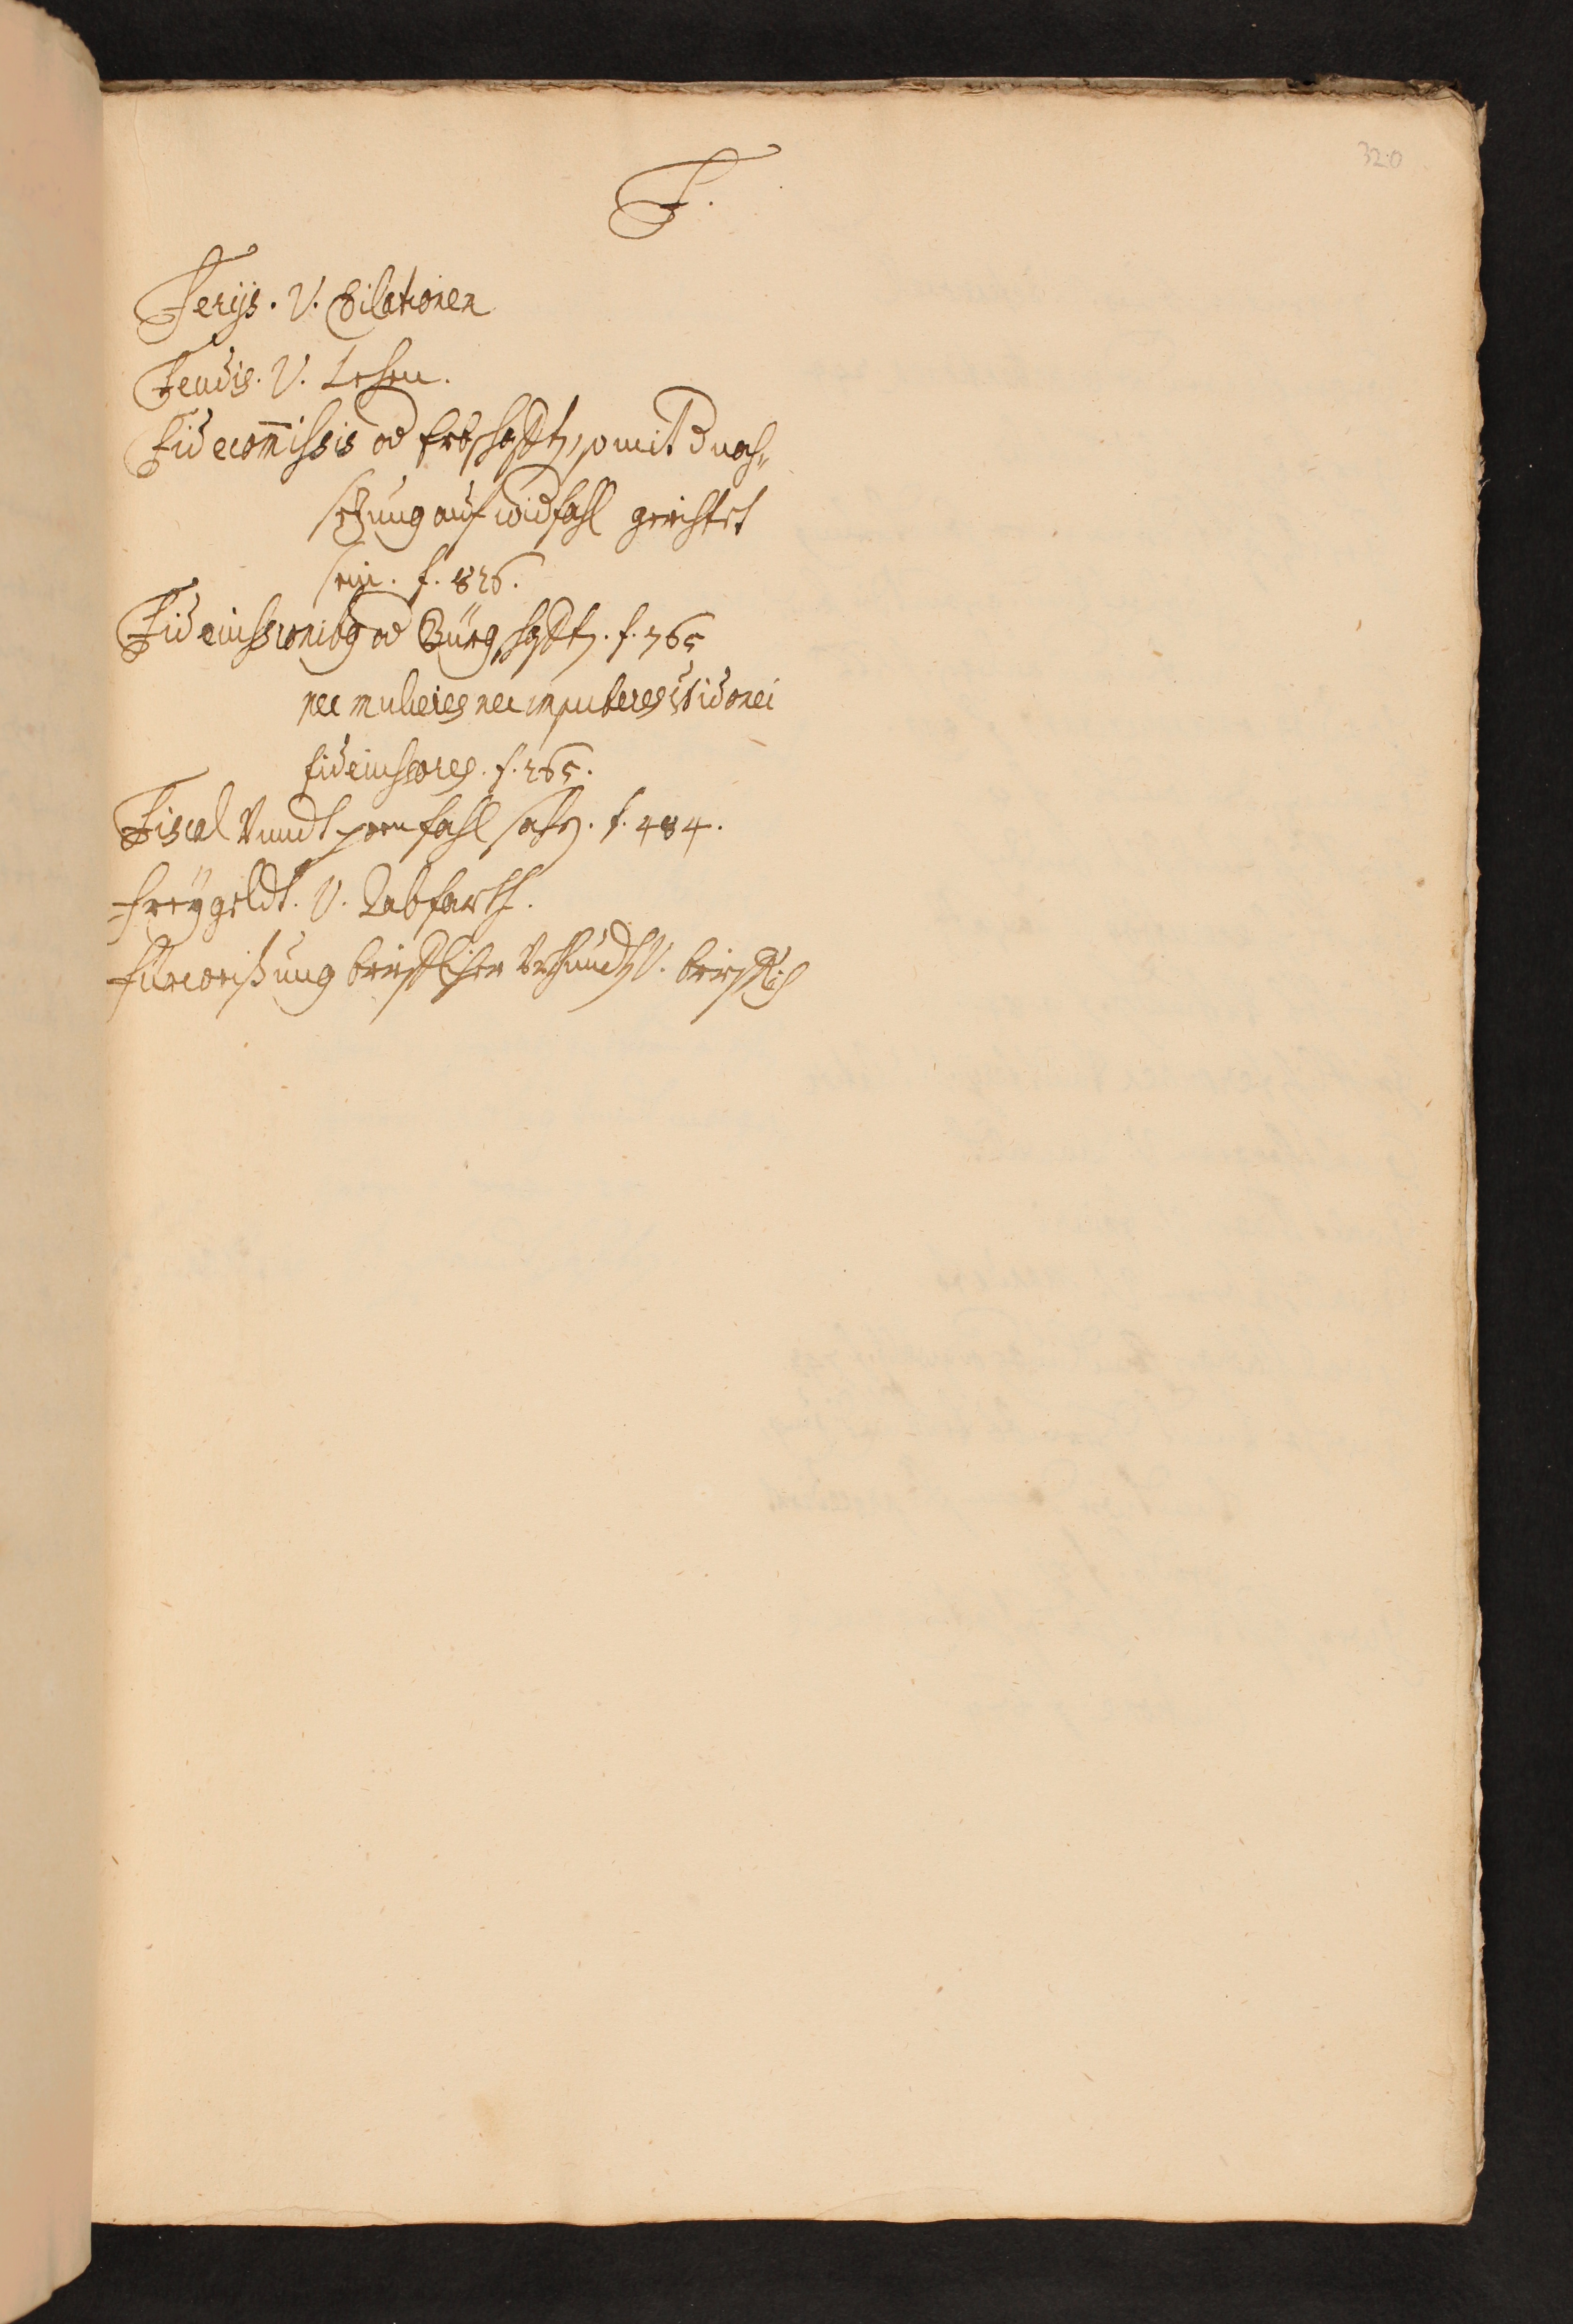 320
F.
Ferijs. V. Dilationen
Feudis. V. Lehen.
Fidecom̄issis od Erbschafften, so mit d nach„
setzung auf widfahl gerichtet
sein. f. 826.
Fideiussionibg od Bürgschafften. f. 765
nec mulieres nec impuberes st idonei
fideiussores. f. 765.
Fiscal Vnndt poenfahl sachen. f. 484.
Freÿgeldt. V. Labfarth.
Fürweißung brieflicher Vrkundt V. brieflich